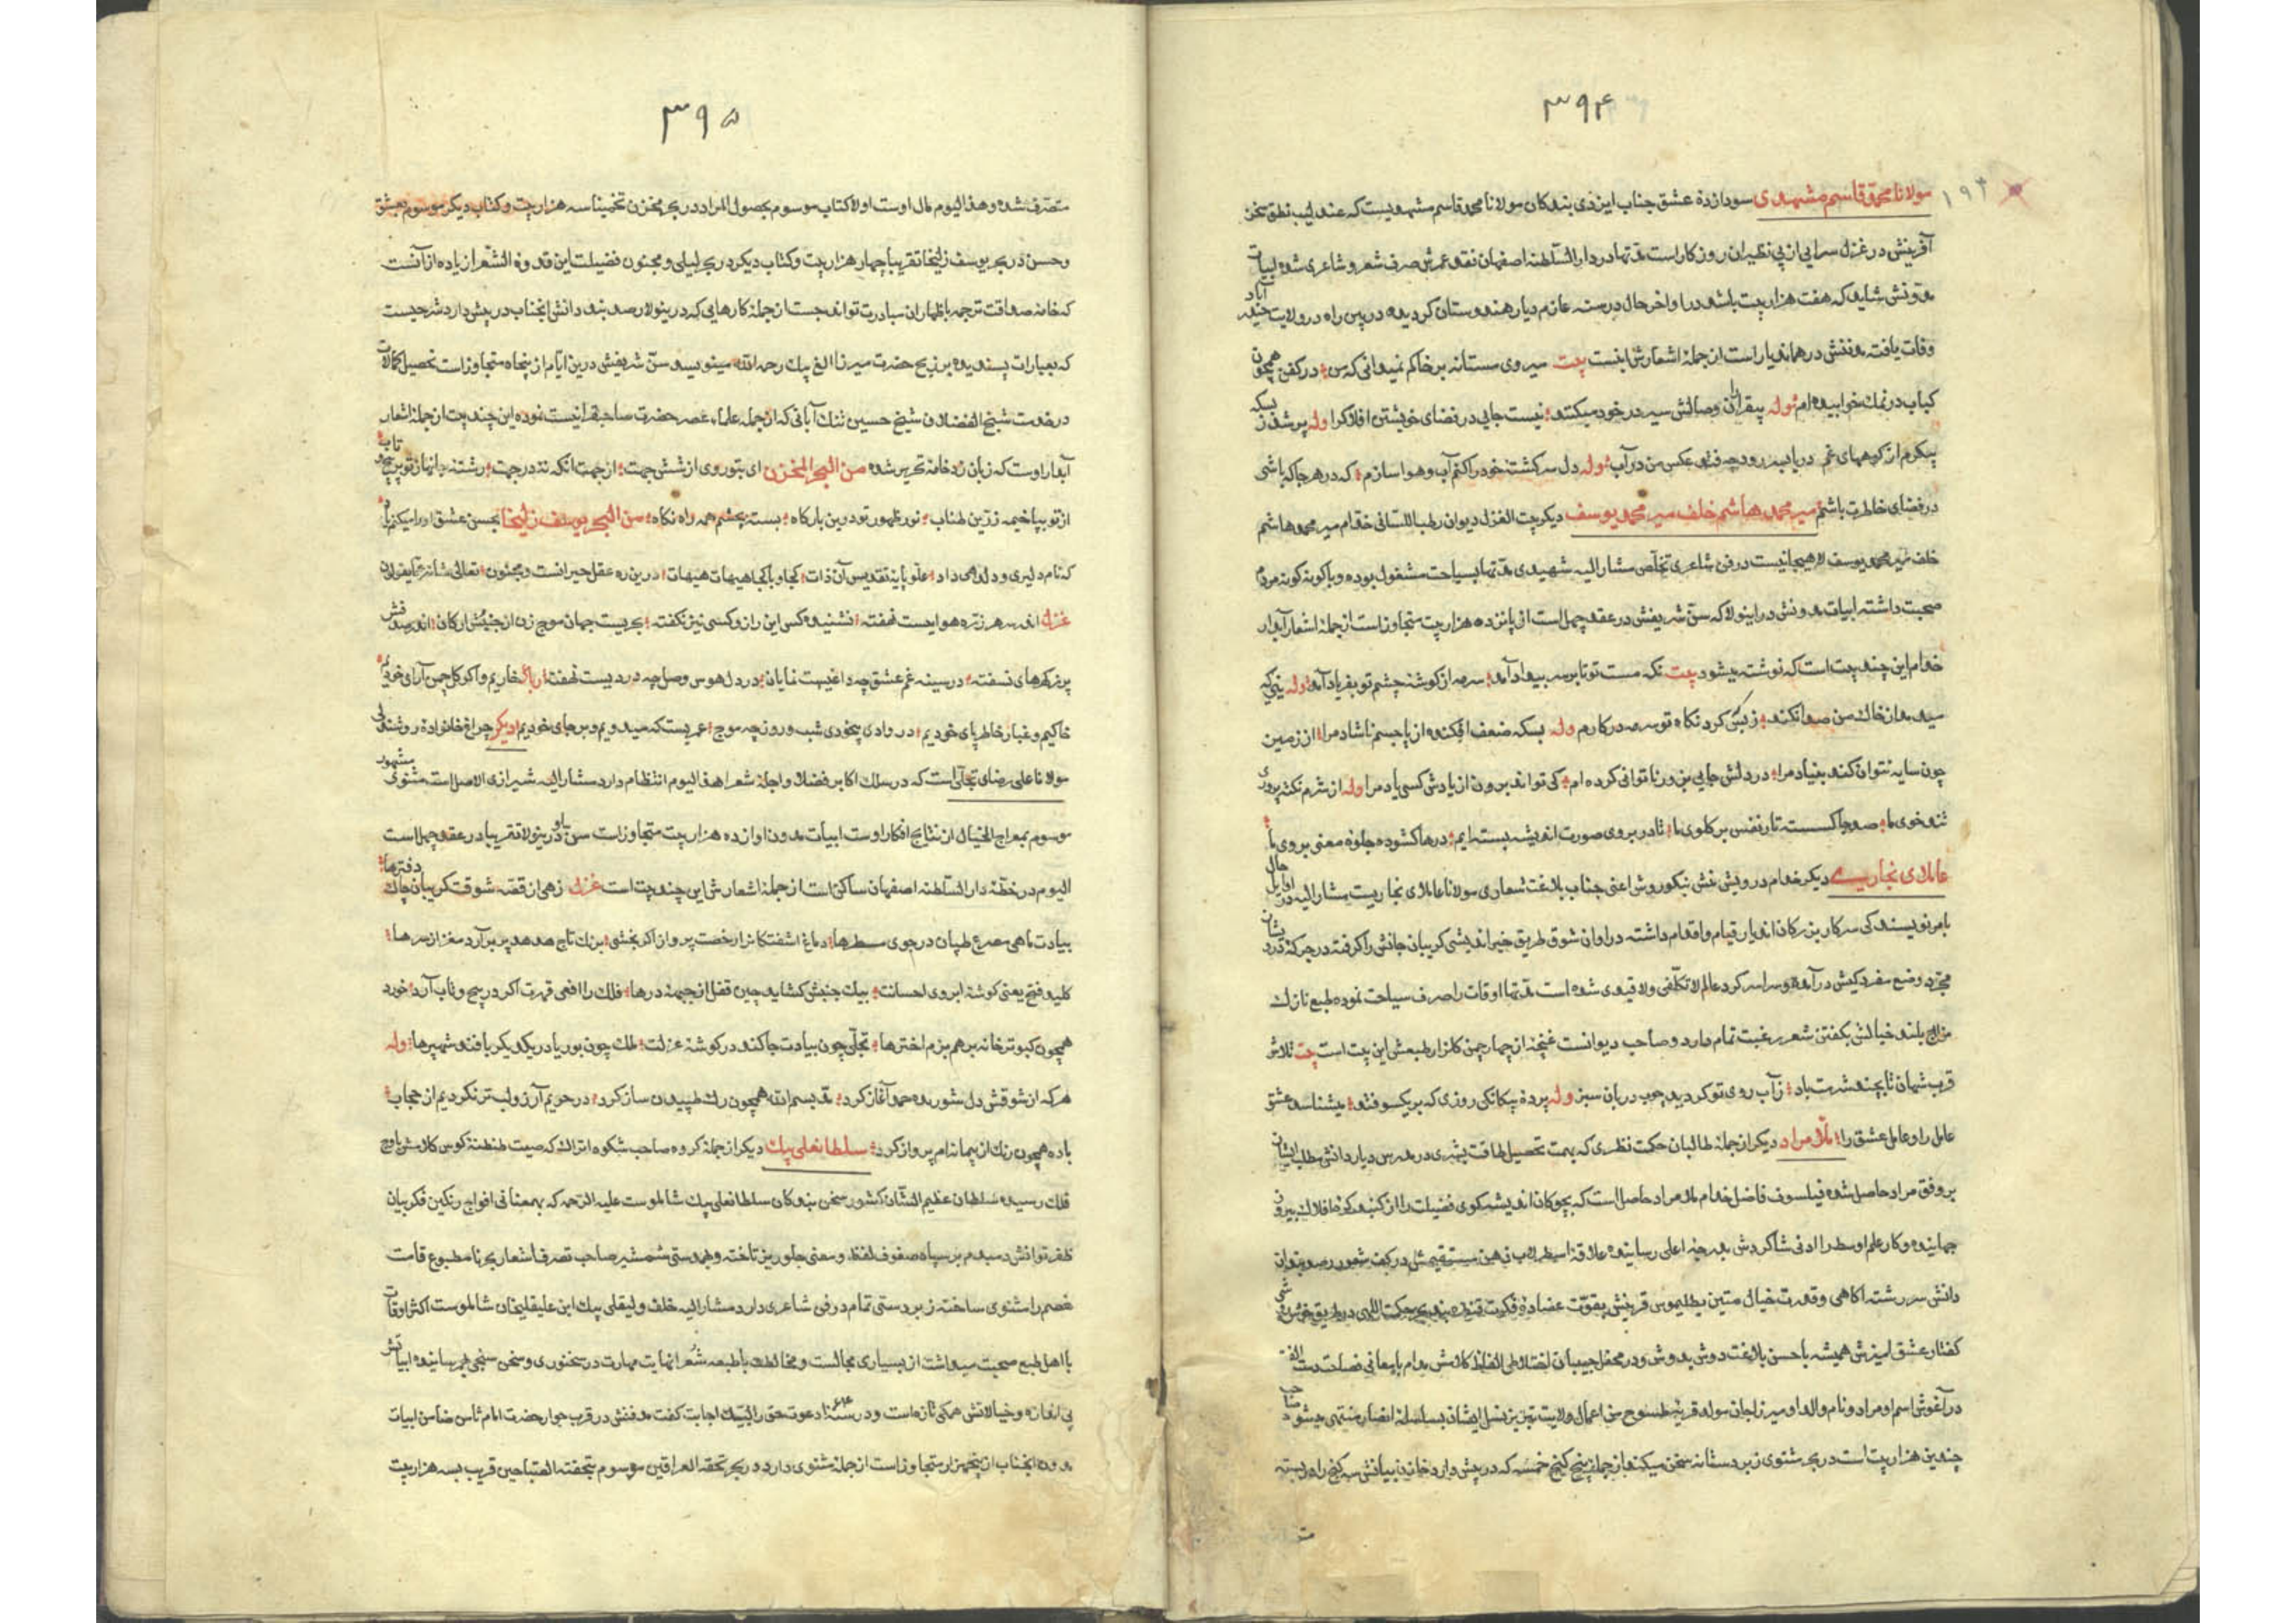 ۳۹۴
۱۹۳
مولانا محمد قاسم مشهدی سودازدهٔ عشق جناب ایزدی بندکان مولانا محمد قاسم مشهدیست که عندلیب نطق سخن
آفرینش در غزل سرایی از بی نظیران روزکار است مدتها در دار السلطنه اصفهان نقد عمرش صرف شعر و شاعری شده ابیات
مدونش شاید که هفت هزار بیت باشد در اواخر حال در سنه عازم دیار هندوستان کردیده در بین راه در ولایت آباد
وفات یافته مدفنش در همان دیار است از جمله اشعارش اینست بیت میروی مستانه بر خاکم نمیدانی که من در کفن همچون
کباب در نمک خوابیده ام وله بیقراران وصالش سیر در خود میکنند نیست جایی در فضای خویشتن افلاک را وله پر شد ز بسکه
پیکرم از کوههای غم دریا به رود چه فتد عکس من در آب وله دل سرکشته خود را کنم آب و هوا سازم که در هر جا که باشی
در فضای خاطرت باشم میر محمد هاشم خلف میر محمد یوسف دیکر بیت الغزل دیوان رطب اللسانی خدام میر محمد هاشم
خلف میر محمد یوسف لاهیجانیست در فن شاعری تخلص مشار الیه شهیدی مدتها بسیاحت مشغول بوده و با کونه کونه مردم
صحبت داشته ابیات مدونش در اینولا که سن شریفش در عقد چهل است از پانزده هزار بیت متجاوز است از جمله اشعار آبدار
خدام این چند بیت است که نوشته میشود بیت نکه مست تو تا بر سر بیداد آمد سرمه از کوشه چشم تو بفریاد آمد وله
سیه از خاک من صدا نکند ز بس کرد نکاه تو سرمه در کارم وله بسکه ضعف افکنده از پا جسم ناشاد مرا از زمین
چون سایه نتوان کند بنیاد مرا در دلش جایی بزور ناتوانی کرده ام کی تواند برون از یادش کسی یاد مرا وله از شرم نکته پروری
تندخوی ما صد جا کسسته تار نفس بر کلوی ما تا در بروی صورت اندیشه بسته ایم درها کشوده جلوه معنی بروی ما
عاملای نجاری دیکر خدام درویش منش نیکو روش اعنی جناب بلاغت شعاری مولانا عاملای نجاریست مشار الیه در اوایل حال
بامر نویسندکی سرکار بزرکان اندیار قیام و اقدام داشته در اوان شوق طریق خیر اندیشی کریبان جانش را کرفته در جرکه
مجرد وضع مفرد کیش در آمده و سراسر کرد عالم لا تکلفی و لا قیدی شده است مدتها اوقات را صرف سیاحت نموده طبع نازک
مزاج بلند خیالش بکفتن شعر رغبت تمام دارد و صاحب دیوانست غنچه از چهار چمن کلزار طبعش این بیت است بیت
قرب شهان تا بچند شرمت باد ز آب روی تو کردید چوب دربان سبز وله پرده بیکانکی روزی که بر یکسو فتد میشناسد عشق
عامل را و عامل عشق را ملا مراد دیکر از جمله طالبان حکمت نظری که بهمت تحصیل طاقت بشری در مدرس دیار دانش مطلب ایشان
بر وفق مراد حاصل شده فیلسوف فاضل خدام ملا مراد حاصل است که بچوکان اندیشه کوی فضیلت را از کنبد کره افلاک بیرون
جهانیده و کار علم اوسط را ادنی شاکردش بدرجه اعلی رسانیده علاقه اسطرلاب ذهن مستقیمش در کف شعور رصد بندان
دانش سر رشته آکاهی و قدرت خیال متین بطلیموس قرینش بقوت عضاده فکرت
کفتار عشق امیزش همیشه با حسن بلاغت دوش بدوش و در محفل حبیبان اختلاط الفاظ کلامش مدام با معانی فضلت دست الفت
در آغوش اسم او مراد و نام والد او میرزا جان مولد قریه طسوج من اعمال ولایت تبریز نسل ایشان بسلسله انصار منتهی میشود صاحب
چندین هزار بیت است در بحر مثنوی زبردستانه سخن میکند از جمله پنج کنج خمسه که در پیش دارد خازن بیانش سه کنج را در بسته
۳۹۵
متصرف شده و هذا الیوم مال اوست اولا کتاب موسوم بحصول المراد در بحر مخزن تخمینا سه هزار بیت و کتاب دیکر موسوم بعشق
و حسن در بحر یوسف زلیخا تقریبا چهار هزار بیت و کتاب دیکر در بحر لیلی و مجنون فضیلت این قدوة الشعرا زیاده از آنست
که خامه صداقت ترجمه باظهار ان مبادرت تواند جست از جمله کارهایی که در ینولا رصدبند دانش انجناب در پیش دارد شرحیست
که بعبارات پسندیده بر زیج حضرت میرزا الغ بیک رحمه الله مینویسد سن شریفش درین ایام از پنجاه متجاوز است تحصیل کمالات
در خدمت شیخ الفضلا شیخ حسین تنک آبانی که از جمله علماء عصر حضرت صاحبقرانیست نموده این چند بیت از جمله اشعار
آبدار اوست که زبان زد خامه تحریر شده من البحر المخزن ای بتو روی از شش جهت از جهت انکه نه در جهت رشته جانها ز تو
از تو بپا خیمه زرین طناب نور ظهور تو درین بارکاه بسته بچشم همه راه نکاه من البحر یوسف زلیخا بحسن عشق
که نام دلبری و دلدهی داد علو پایه تقدیس آن ذات کجا و ما کجا هیهات هیهات درین ره عقل حیرانست و مجنون تعالی شانه عما یقولون
غزل اندر سر هر ذره هواییست نهفته نشنیده کسی این راز و کسی نیز نکفته بحریست جهان موج زن از جنبش ارکان اندر صدفش
پر ز کهرهای نسفته در سینه غم عشق چه داغیست نمایان در دل هوس وصل چه دردیست نهفته رباعی خاریم و اکر کل چمن آرای خودیم
خاکیم و غبار خاطر پای خودیم در وادی بیخودی شب و روز چه موج عمریست که میدویم و بر جای خودیم دیکر چراغ خانواده روشندلی
مولانا علی رضای تجلّا است که در سلک اکابر فضلا و اجله شعرا هذا الیوم انتظام دارد مشار الیه شیرازی الاصل است مثنوی مشهور
موسوم بمعراج الخیال از نتایج افکار اوست ابیات مدون او از ده هزار بیت متجاوز است سن او درینولا تقریبا در عقد چهل است
الیوم در خطّه دار السلطنه اصفهان ساکن است از جمله اشعارش این چند بیت است غزل زهی از قصه شوقت کریبان چاک دفترها
بیادت ماهی مصرع طپان در جوی مسطرها دماغ اشفتکانرا رخصت پرواز اکر بخشی برنک تاج هدهد پر بر آرد مغز از سرها
کلید فتح یعنی کوشه ابروی احسانت بیک جنبش کشاید چین قفل از جبهه درها فلک را افعی قهرت اکر در پیچ و تاب آرد خورد
همچون کبوتر خانه برهم بزم اخترها تجلّی چون بیادت جا کند در کوشه عزلت ملک چون بوریا در یکدیکر بافند شهپرها وله
هر که از شوقش دل شوریده حمد آغاز کرد مد بسم الله همچون رک طپیدن ساز کرد در حریم آرزو لب تر نکردیم از حجاب
باده همچون رنک از پیمانه ام پرواز کرد سلطانعلی بیک دیکر از جمله کروه صاحب شکوه اتراک که صیت طنطنه کوس کلامش باوج
فلک رسیده سلطان عظیم الشان کشور سخن بندکان سلطانعلی بیک شاملوست علیه الرحمه که بهمعنانی افواج رنکین فکر بیان
ظفر توانش دمبدم بر سپاه صفوف لفظ و معنی جلوریز تاخته و بهمدستی شمشیر صاحب تصرف اشعار بحر نامطبوع قامت
خصم را مثنوی ساخته زبردستی تمام در فن شاعری دارد مشار الیه خلف ولیقلی بیک ابن علیقلیخان شاملوست اکثر اوقات
با اهل طبع صحبت میداشت از بسیاری مجالست و مخالطت با طبقه شعرا نهایت مهارت در سخنوری و سخن سنجی بهم رسانیده ابیاتش
بی اندازه و خیالاتش همکی تازه است و در سنه دعوت حق را لبیک اجابت کفت مدفنش در قرب جوار حضرت امام ثامن ضامن ابیات
مدونه انجناب از پنجهزار متجاوز است از جمله مثنوی دارد در بحر تحفة العراقین موسوم بتحفة الصباحین قریب بسه هزار بیت